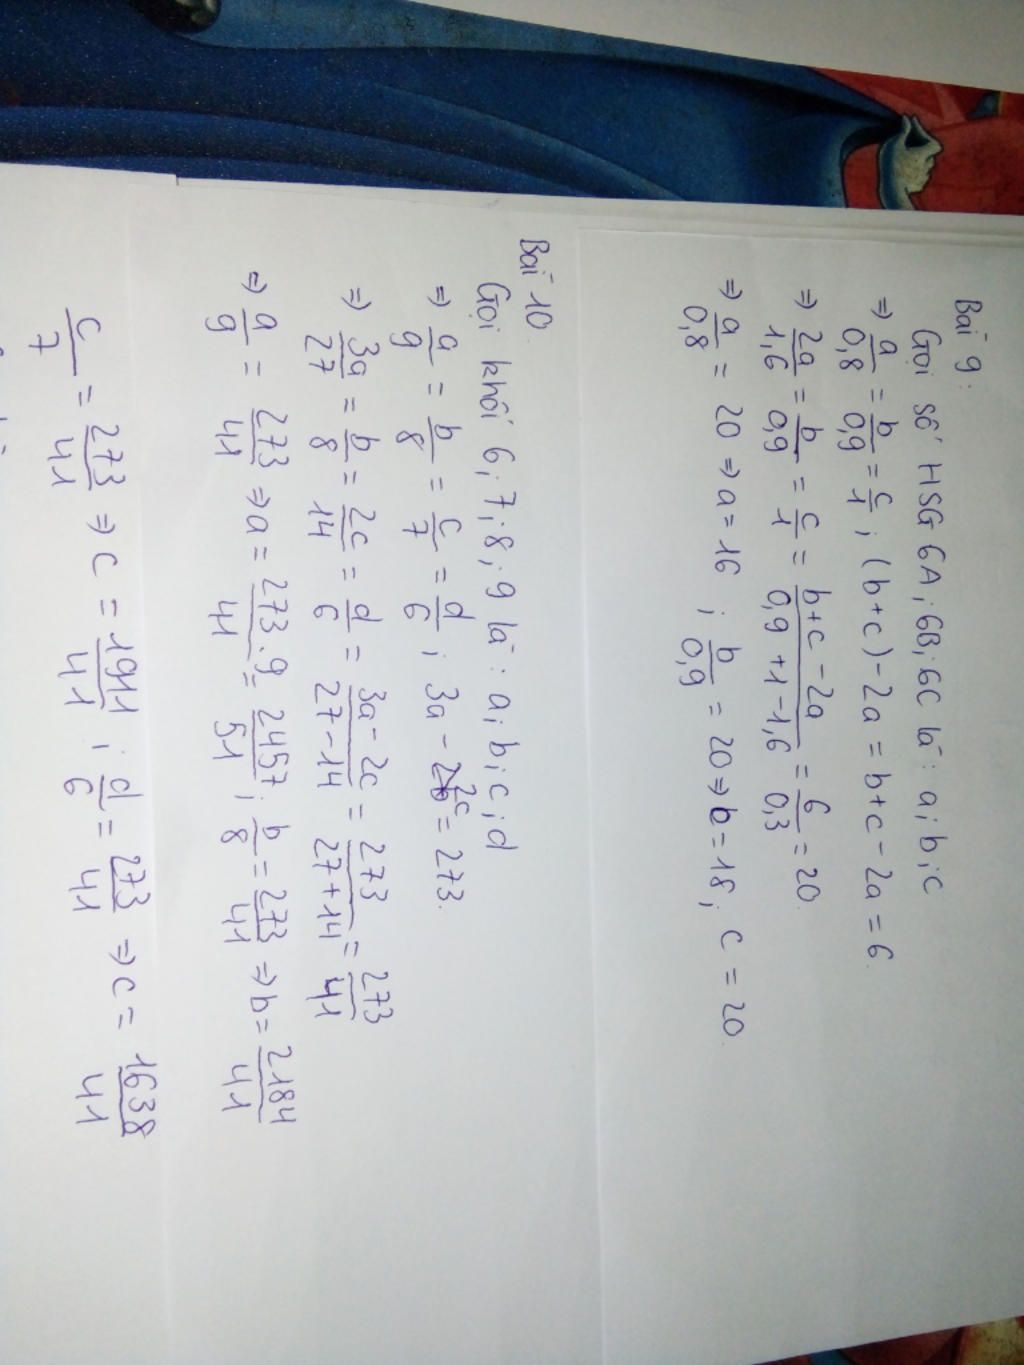 Bài 9:
Gọi số HSG 6A; 6B; 6C là: a; b; c
⇒ a/0,8 = b/0,9 = c/1; (b+c) - 2a = b+c - 2a = 6.
⇒ 2a/1,6 = b/0,9 = c/1 = b+c-2a/0,9+1-1,6 = 6/0,3 = 20.
⇒ a/0,8 = 20 ⇒ a = 16; b/0,9 = 20 ⇒ b = 18; c = 20.
Bài 10.
Gọi khối 6; 7; 8; 9 là: a; b; c; d
⇒ a/9 = b/8 = c/7 = d/6; 3a - 2c = 273.
⇒ 3a/27 = b/8 = 2c/14 = d/6 = 3a-2c/27-14 = 273/27+14 = 273/41
⇒ a/9 = 273/41 ⇒ a = 273.9/41 = 2457/51; b/8 = 273/41 ⇒ b = 2184/41
c/7 = 273/41 ⇒ c = 1911/41; d/6 = 273/41 ⇒ c = 1638/41